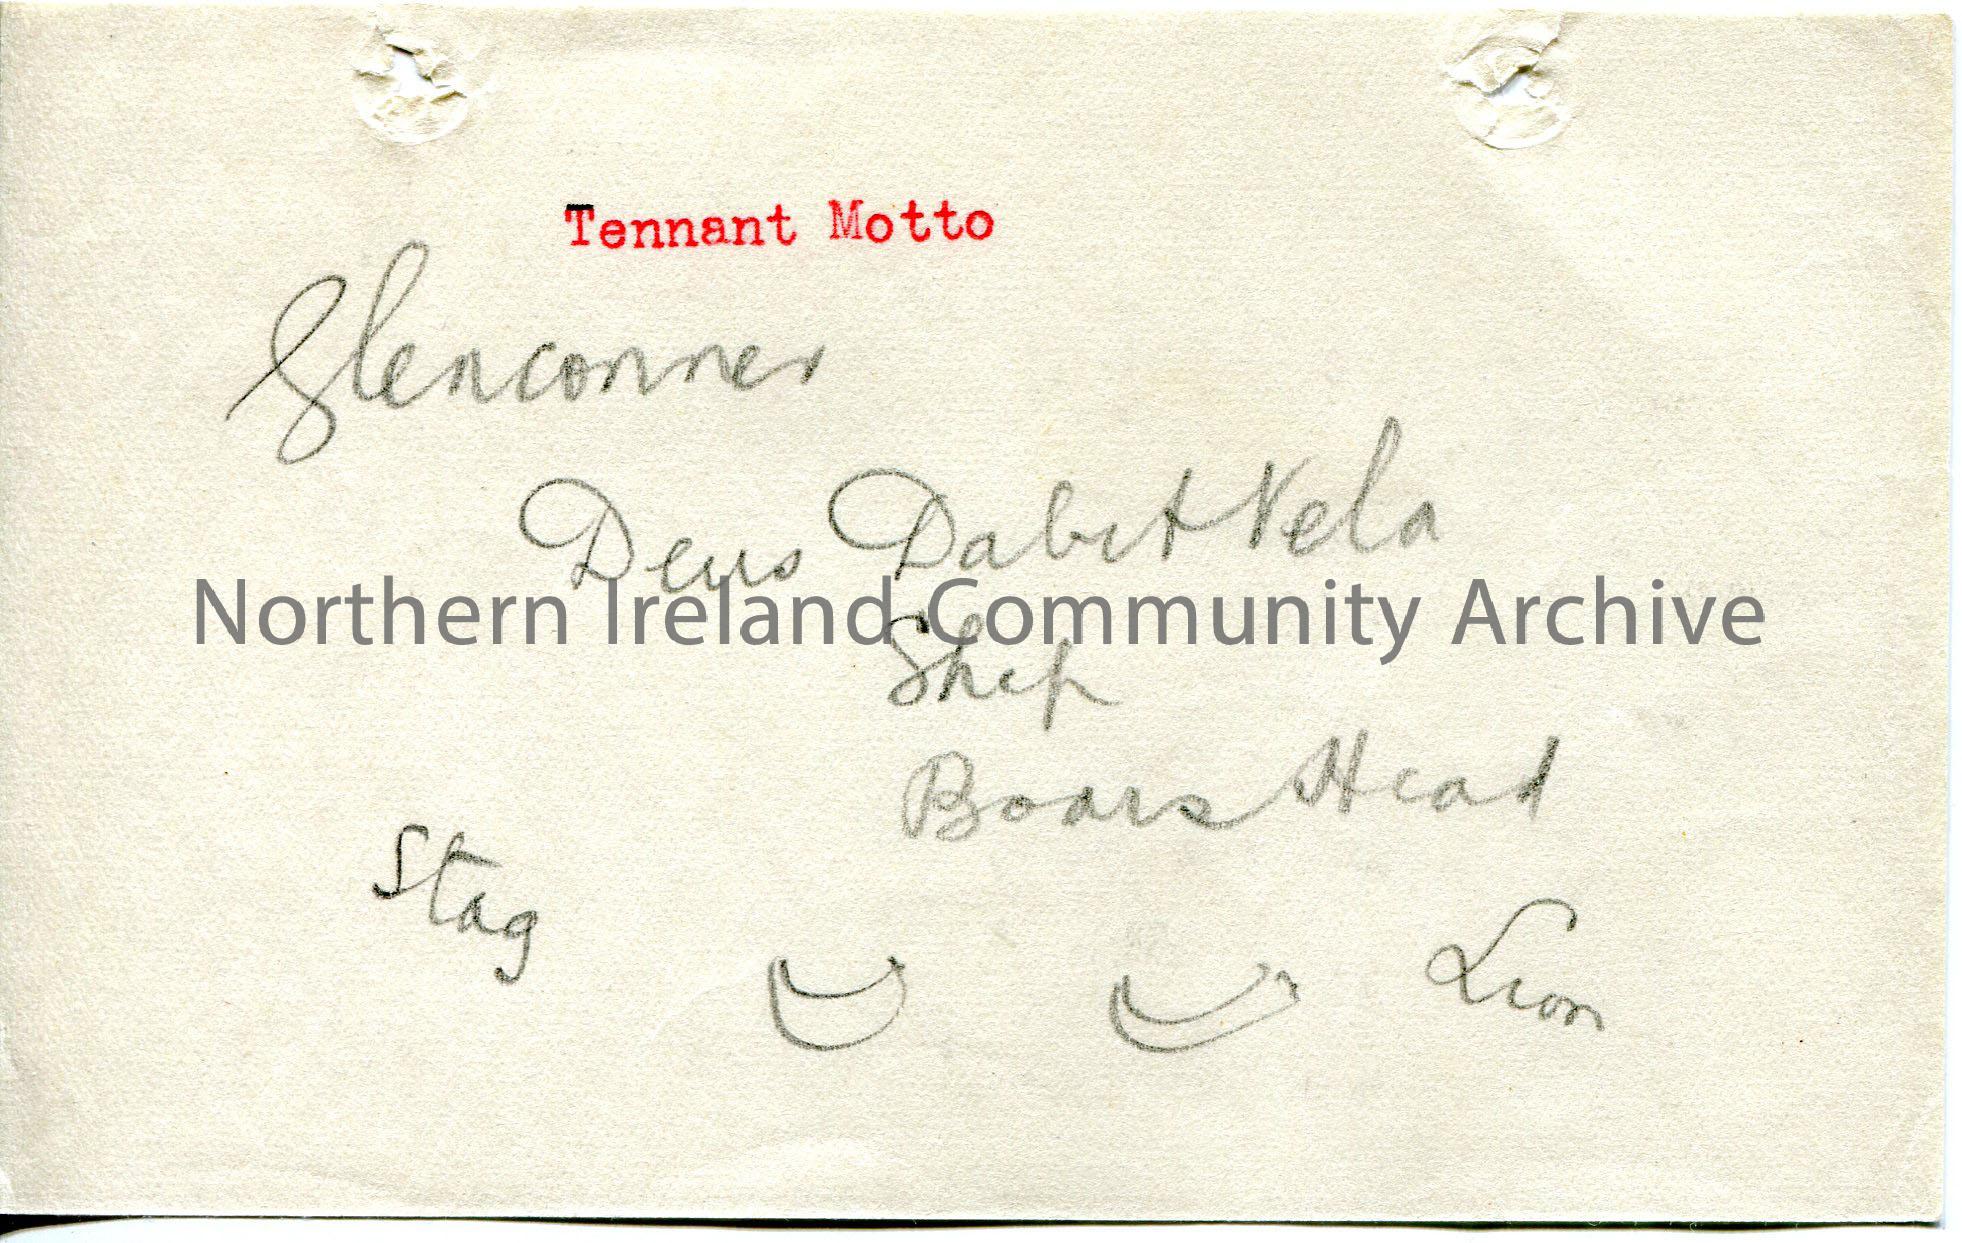 Tennant Motto
Glenconner
Deus Dabit Vela
Northern Ireland Community Archive
Ship
Boars Head
Stag
Lion